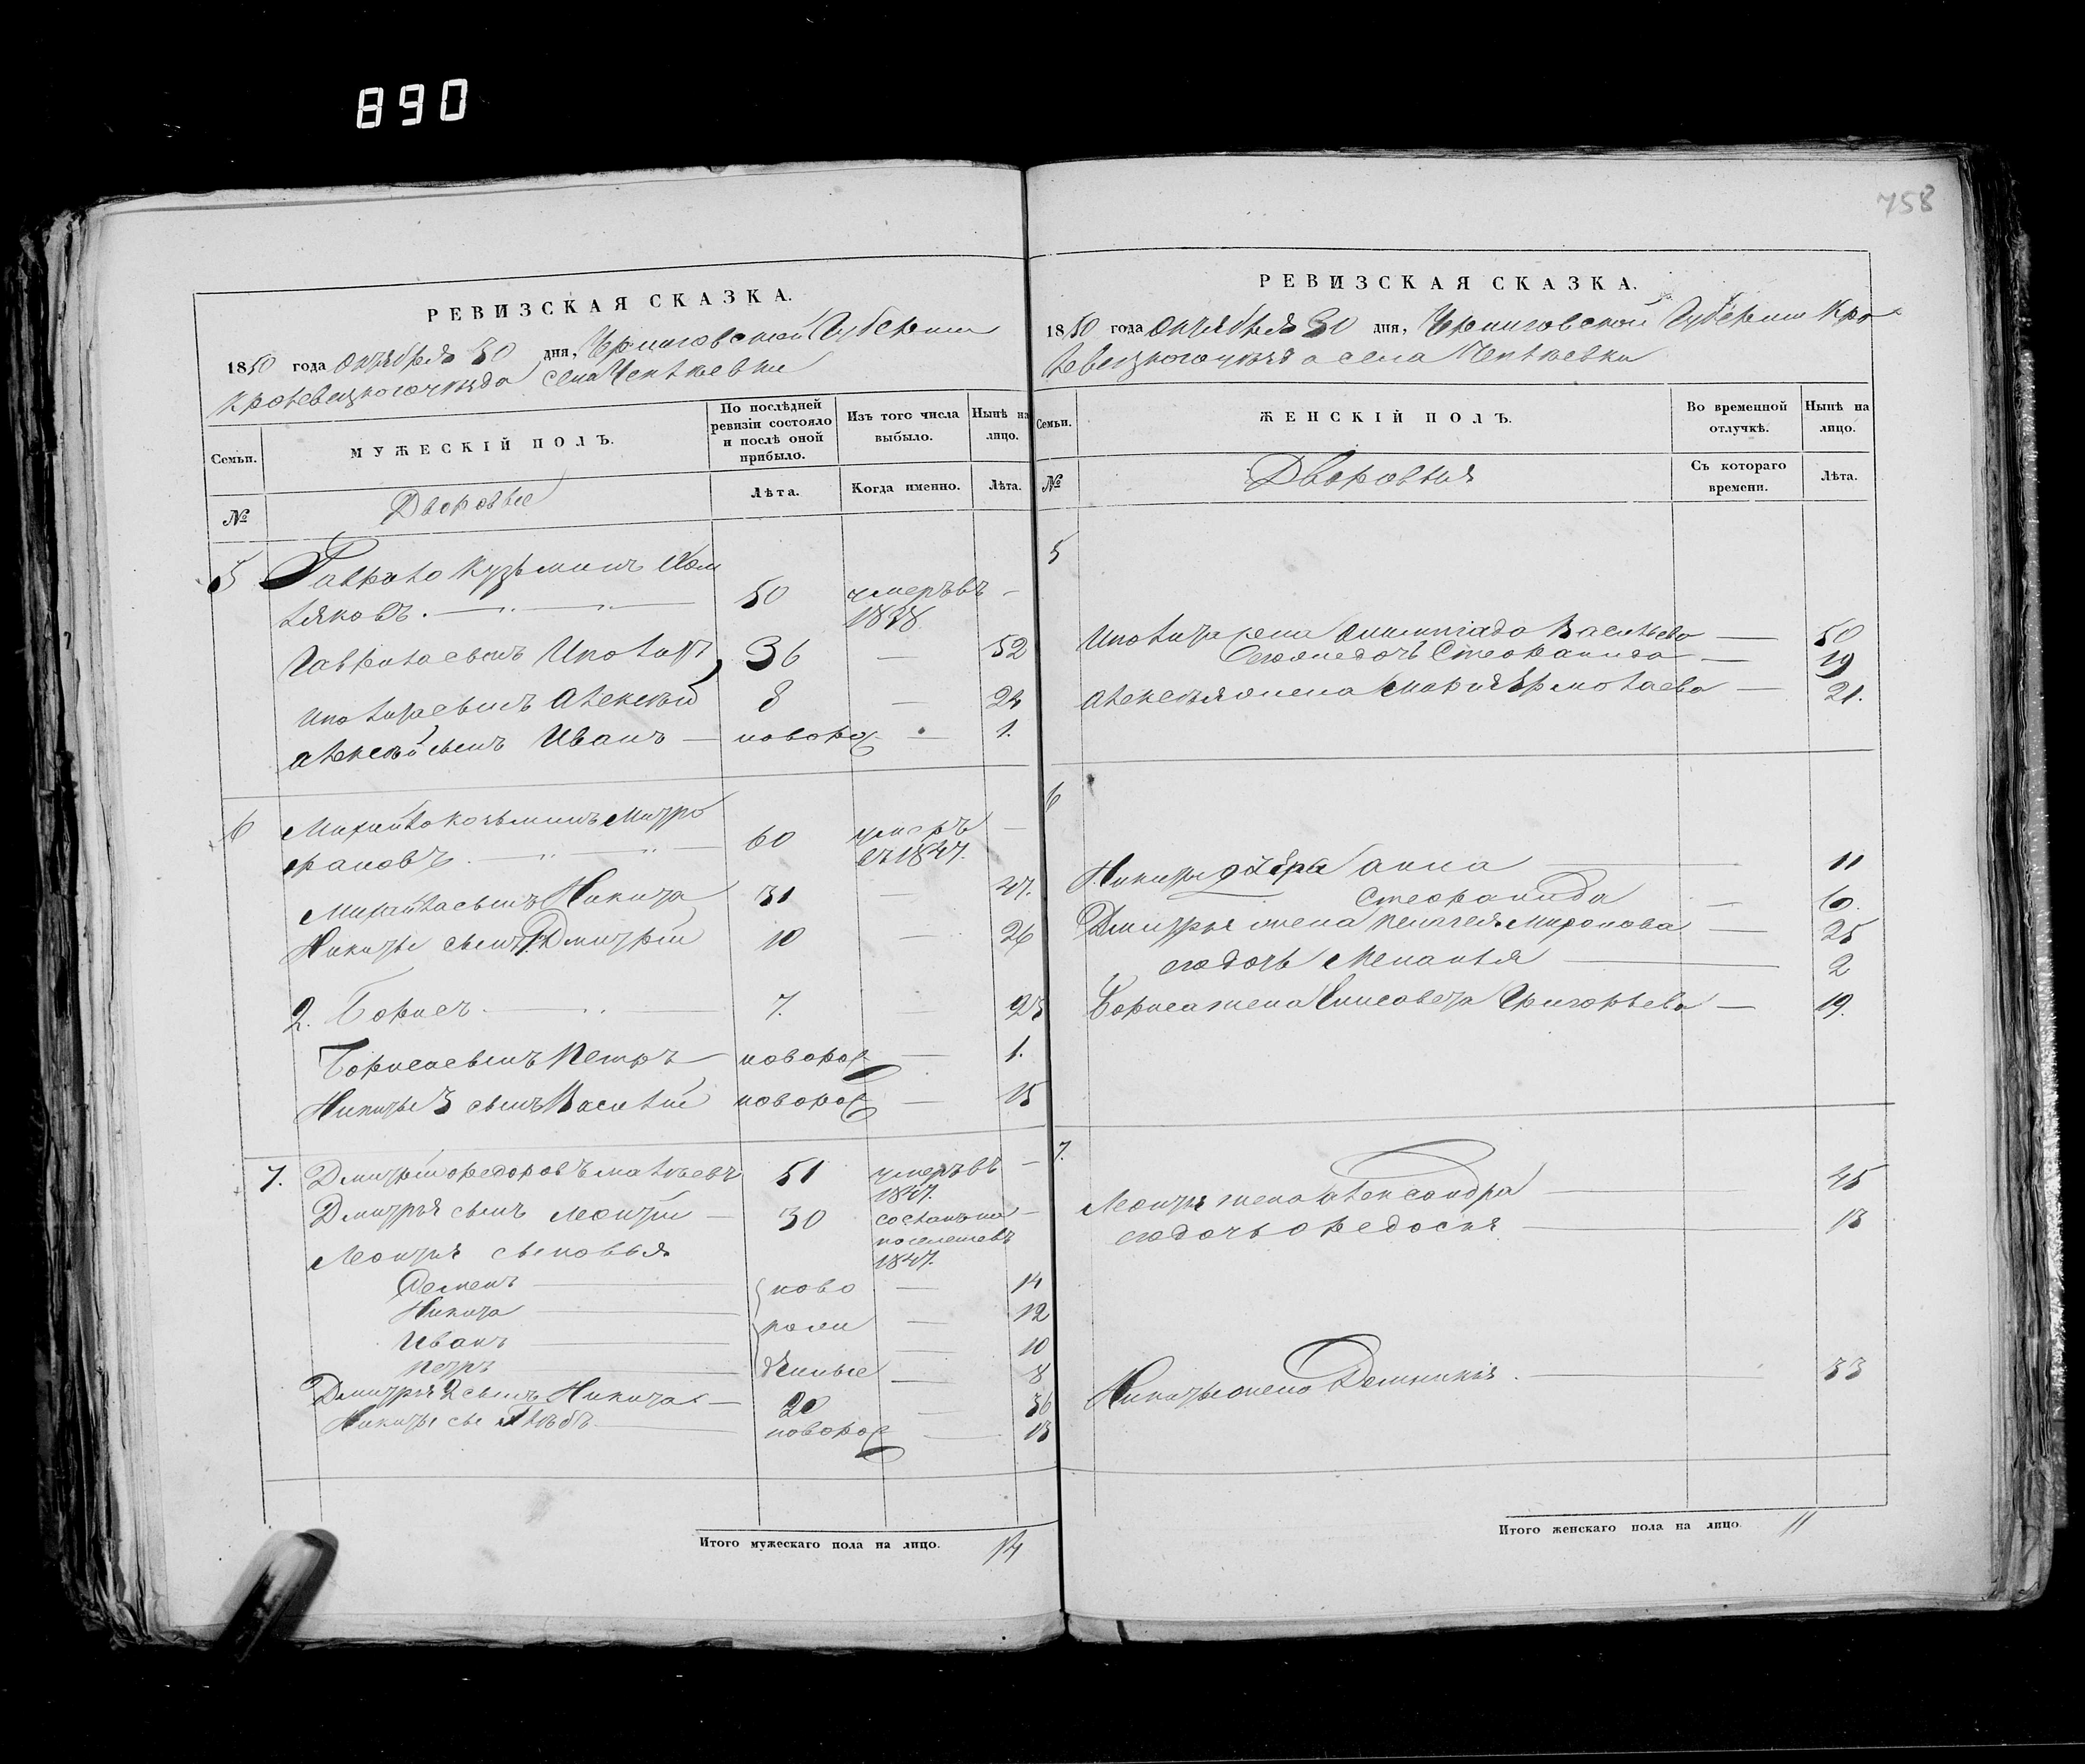 890
758
РЕВИЗСКАЯ СКАЗКА.
1850 года Октября 30 дня, Черниговской Губернии
Кролевецкого уезда села
Семьи.
МУЖЕСКІЙ ПОЛЪ.
По послѣдней ревизіи состояло и послѣ оной прибыло.
Изъ того числа выбыло.
Нынѣ на лицо.
№
Дворовые
Лѣта.
Когда именно.
Лѣта.
5 Гаврило Кузьминъ
50 умеръ въ 1838 —
Гаврила сынъ Иполитъ 36 — 52
Иполита сынъ Алексѣй 8 — 24
Алексѣя сынъ Иванъ — новорож — 1.
6 Михайло Козьминъ Митро
фановъ 60 умеръ въ 1847. —
Михайла сынъ Никита 31 — 47.
Никиты сынъ 1. Дмитрій 10 — 26
2. Борисъ 7. — 23
Бориса сынъ Петръ новорож — 1.
Никиты 3 сынъ Василій новорож — 15
7. Дмитрій Федоровъ Матвѣевъ 51 умеръ въ 1847. —
Дмитрія сынъ Леонтій — 30 сосланъ на поселение въ 1847. —
Леонтія сыновья
Семенъ ново — 14
Никита — 12
Иванъ рож — 10
Петръ денные — 8
Дмитрія 2 сынъ Никита — 20 — 36
Никиты сы Глѣбъ новорож — 13
Итого мужескаго пола на лицо. 14
РЕВИЗСКАЯ СКАЗКА.
1850 года Октября 30 дня, Черниговской Губернии Кро
левецкого уезда села
Семьи.
ЖЕНСКІЙ ПОЛЪ.
Во временной отлучкѣ.
Нынѣ на лицо.
№
Дворовыя
Съ котораго времени.
Лѣта.
5
Иполита жена Олимпіада Васильева — 50
его дочь Стефанида — 19
Алексѣя жена Марія Ермолаева — 21.
6
Никиты дочери Анна — 11
Стефанида — 6.
Дмитрія жена Пелагея Миронова — 25
его дочь Меланья — 2
Бориса жена Елисавета Григорьева — 19.
7.
Леонтія жена Александра — 45
его дочь Федосья — 13
Никиты жена Домникія — 33
Итого женскаго пола на лицо. 11